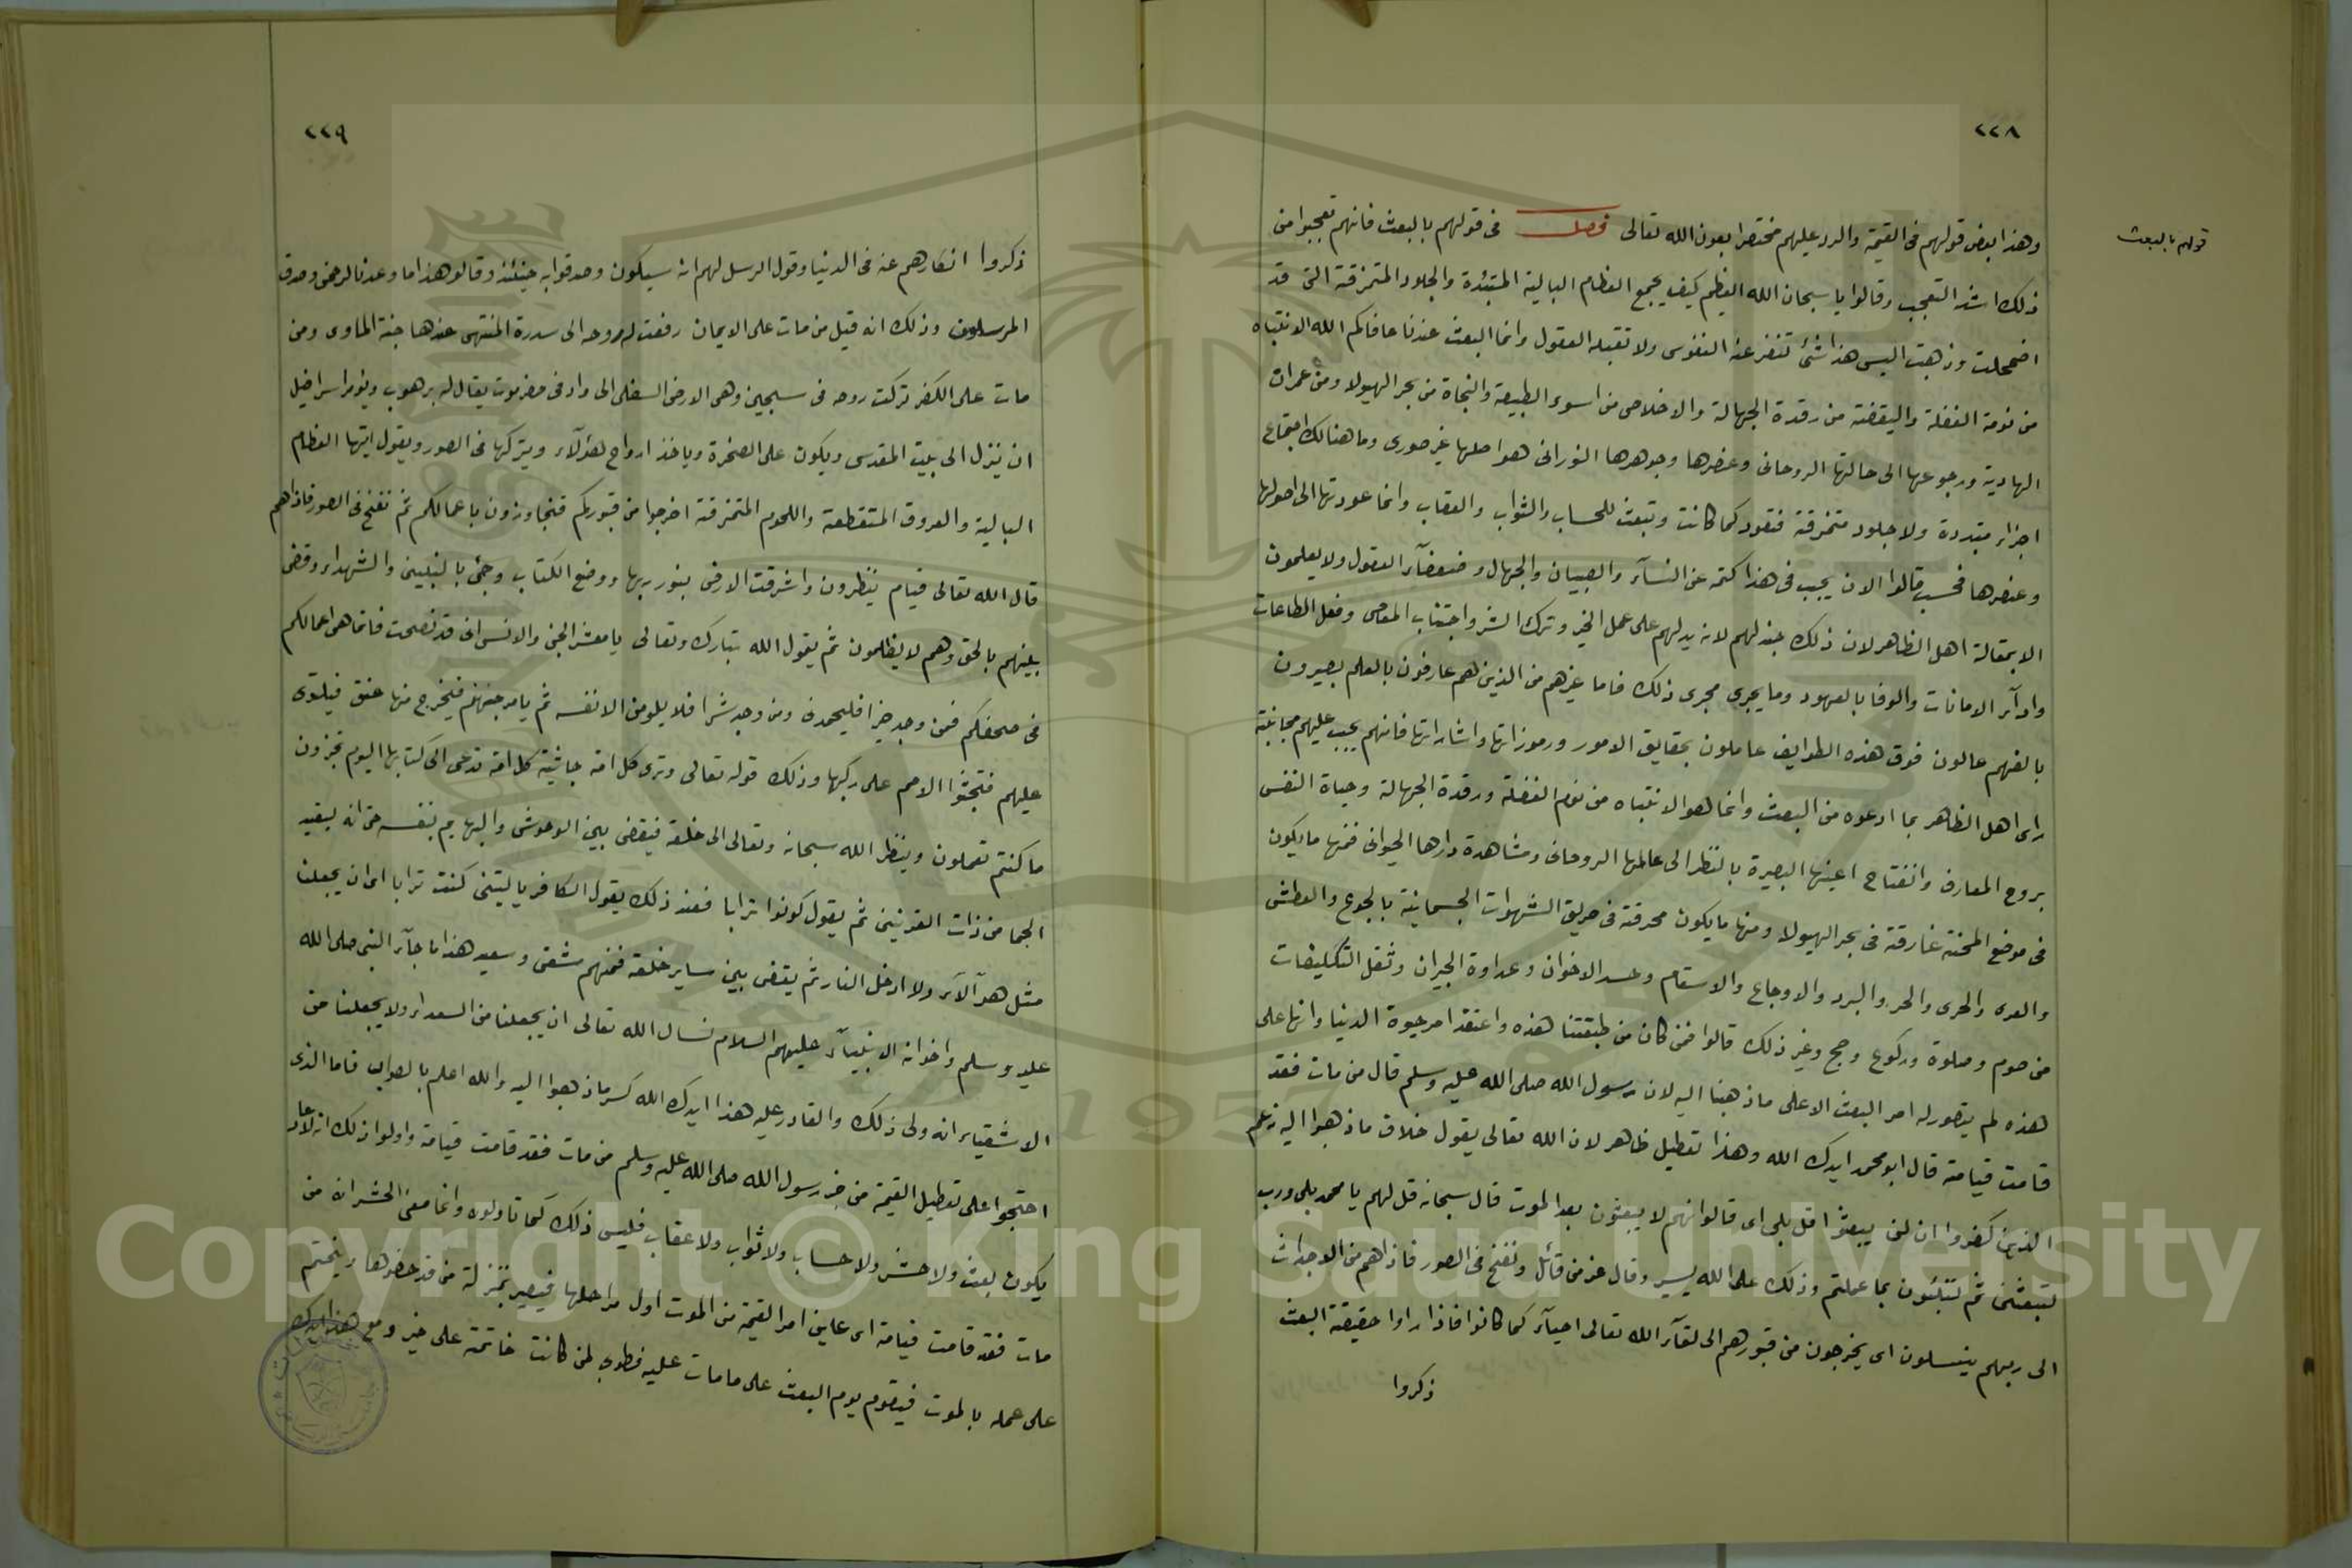 ٢٢٨
قولهم بالبعث
وهذا بعض قولهم فى القيمة والرد عليهم مختصرا بعون الله تعالى فصل فى قولهم بالبعث فانهم تعجبوا من
ذلك اشد التعجب وقالوا يا سبحان الله العظيم كيف يجمع العظام البالية المتبددة والجلود المتمزقة التى قد
اضمحلت وذهبت اليس هذا شئ تنفر عنه النفوس ولا تقبله العقول وانما البعث عندنا عافاكم الله الانتباه
من نومة الغفلة واليقضة من رقدة الجهالة والاخلاص من اسوء الطبيعة والنجاة من بحر الهيولا ومن غمرات
الهادية ورجوعها الى حالتها الروحانى وعنصرها وجوهرها النورانى هو اصلها غير صورى وما هنالك اجتماع
اجزاء مبتددة ولا جلود متمزقة فتعود كما كانت وتبعث للحساب والثواب والعقاب وانما عودتها الى اصولها
وعنصرها فحسب قالوا الان يجب فى هذا كتمه عن النسآء والصبيان والجهال وضعفآء العقول ولا يعلمون
الا بمقالة اهل الظاهر لان ذلك جيد لهم لانه يدلهم على عمل الخير وترك الشر واجتناب المعاصى وفعل الطاعات
وادآء الامانات والوفا بالعهود وما يجرى مجرى ذلك فاما غيرهم من الذين هم عارفون بالعلم بصيرون
بالفهم عالون فوق هذه الطوايف عاملون بحقايق الامور ورموزاتها واشاراتها فانهم يجب عليهم مجانبة
راى اهل الظاهر بما ادعوه من البعث وانما هو الانتباه من نوم الغفلة ورقدة الجهالة وحياة النفس
بروح المعارف وانفتاح اعينها البصيرة بالنظر الى عالمها الروحانى ومشاهدة دارها الحيوانى فمنها ما يكون
فى موضع المحنة غارقة فى بحر الهيولا ومنها ما يكون محرقة فى حريق الشهوات الجسمانية بالجوع والعطش
والعرى والحرى والحر والبرد والاوجاع والاسقام وحسد الاخوان وعداوة الجيران وثقل التكليفات
من صوم وصلوة وركوع وحج وغير ذلك قالوا فمن كان من طبقتنا هذه واعتقد امر حيوة الدنيا وانها على
هذه لم يتصور له امر البعث الا على ما ذهبنا اليه لان رسول الله صلى الله عليه وسلم قال من مات فقد
قامت قيامته قال ابو محمد ايدك الله وهذا تعطيل ظاهر لان الله تعالى يقول خلاف ما ذهبوا اليه زعم
الذين كفروا ان لن يبعثوا قل بلى اى قالوا انهم لا يبعثون بعد الموت قال سبحانه قل لهم يا محمد بلى ورب
لتبعثن ثم لتنبئون بما عملتم وذلك على الله يسير وقال عز من قائل ونفخ فى الصور فاذا هم من الاجداث
الى ربهم ينسلون اى يخرجون من قبورهم الى لقآء الله تعالى احيآء كما كانوا فاذا راوا حقيقة البعث
ذكروا
٢٢٩
ذكروا انكارهم عنه فى الدنيا وقول الرسل لهم انه سيكون وصدقوا به حينئذ وقالو هذا ما وعدنا الرحمن وصدق
المرسلون وذلك انه قيل من مات على الايمان رفعت له روحه الى سدرة المنتهى عندها جنة الماوى ومن
مات على الكفر تركت روحه فى سبجين وهى الارض السفلى الى واد فى حضرموت يقال له برهوب ويؤمر اسرافيل
ان ينزل الى بيت المقدس ويكون على الصخرة وياخذ ارواح هؤلآء ويتركها فى الصور ويقول ايتها العظام
البالية والعروق المتقطعة واللحوم المتمزقة اخرجوا من قبوركم فتجاوزون باعمالكم ثم نفخ فى الصور فاذا هم
قال الله تعالى قيام ينظرون واشرقت الارض بنور ربها ووضع الكتاب وجئ بالنبيين والشهداء وقضى
بينهم بالحق وهم لا يظلمون ثم يقول الله تبارك وتعالى يا معشر الجن والانس انى قد نصحت فانما هى اعمالكم
فى صحفكم فمن وجد خيرا فليحمدنى ومن وجد شرا فلا يلومن الا نفسه ثم يامر جهنم فيخرج منها عنق فيلتوى
عليهم فتجثوا الامم على ركبها وذلك قوله تعالى وترى كل امة جاثية كل امة تدعى الى كتابها اليوم تجزون
ما كنتم تعملون وينظر الله سبحانه وتعالى الى خلقه فيقضى بين الوحوش والبهايم بنفسه حتى انه ليقيد
الجما من ذات القرنين ثم يقول كونوا ترابا فعند ذلك يقول الكافر يا ليتنى كنت ترابا اى ان يجعلنا
مثل هؤلآء ولا ادخل النار ثم يقضى بين ساير خلقه فمنهم شقى وسعيد هذا ما جآء النبى صلى الله
عليه وسلم واخوانه الانبيآء عليهم السلام نسال الله تعالى ان يجعلنا من السعداء ولا يجعلنا من
الاشقياء انه ولى ذلك والقادر عليه هذا ايدك الله كسر ما ذهبوا اليه والله اعلم بالصواب فاما الذى
احتجوا على تعطيل القيمة من خبر رسول الله صلى الله عليه وسلم من مات فقد قامت قيامته واولوا ذلك انه لا
يكون بعث ولا حشر ولا حساب ولا ثواب ولا عقاب فليس ذلك كما تاولوه وانما معنى الحشر انه من
مات فقد قامت قيامته اى عاين امر القيمة من الموت اول مراحلها فيصير بمنزلة من قد حضرها ويختم
على عمله بالموت فيقوم يوم البعث على ما مات عليه فطوبى لمن كانت خاتمته على خير ومع هذا ايدك
Copyright © King Saud University
1957